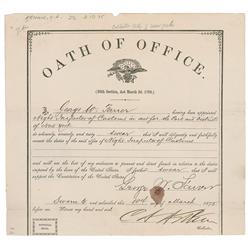 OATH OF OFFICE.
(20th Section, Act March 2d, 1799.)
I George W. Farror having been appointed
Night Inspector of Customs in and for the Port and District
of New York
do solemnly, sincerely, and truly swear that I will diligently and faithfully
execute the duties of the said office of Night Inspector of Customs
and will use the best of my endeavors to prevent and detect frauds in relation to the duties
imposed by the laws of the United States. I further swear that I will support
the Constitution of the United States.
George W. Farror
Sworn to this 10th day of March 1875
before me
C A Arthur
Collector.